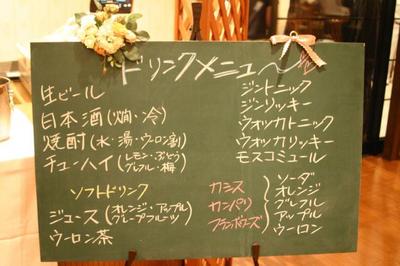 ドリンクメニュー
生ビール
日本酒(燗・冷)
焼酎(水・湯・ウーロン割)
チューハイ(レモン・ぶどう
グレフル・梅)
ソフトドリンク
ジュース(オレンジ・アップル
グレープフルーツ)
ウーロン茶
ジントニック
ジンリッキー
ウォッカトニック
ウォッカリッキー
モスコミュール
カシス
カンパリ
フランボワーズ
ソーダ
オレンジ
グレフル
アップル
ウーロン